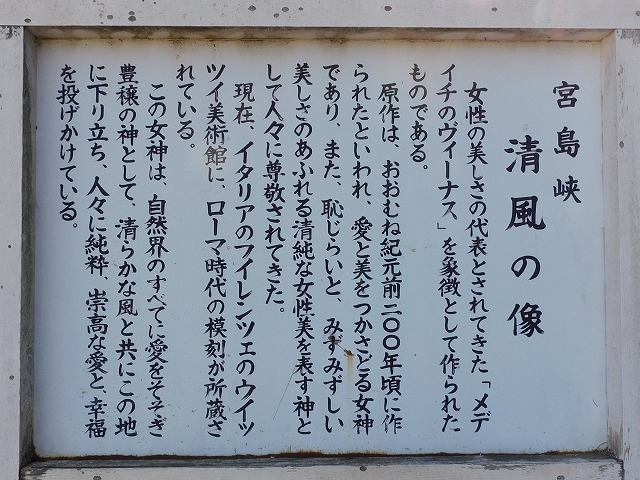 宮島峡
清風の像
女性の美しさの代表とされてきた「メデ
イチのヴィーナス」を象徴として作られた
ものである。
原作は、おおむね紀元前二〇〇年頃に作
られたといわれ、愛と美をつかさどる女神
であり、また、恥じらいと、みずみずしい
美しさのあふれる清純な女性美を表す神と
して人々に尊敬されてきた。
現在、イタリアのフイレンツェのウイツ
ツイ美術館に、ローマ時代の模刻が所蔵さ
れている。
この女神は、自然界のすべてに愛をそそぎ
豊穣の神として、清らかな風と共にこの地
に下り立ち、人々に純粋、崇高な愛と、幸福
を投げかけている。